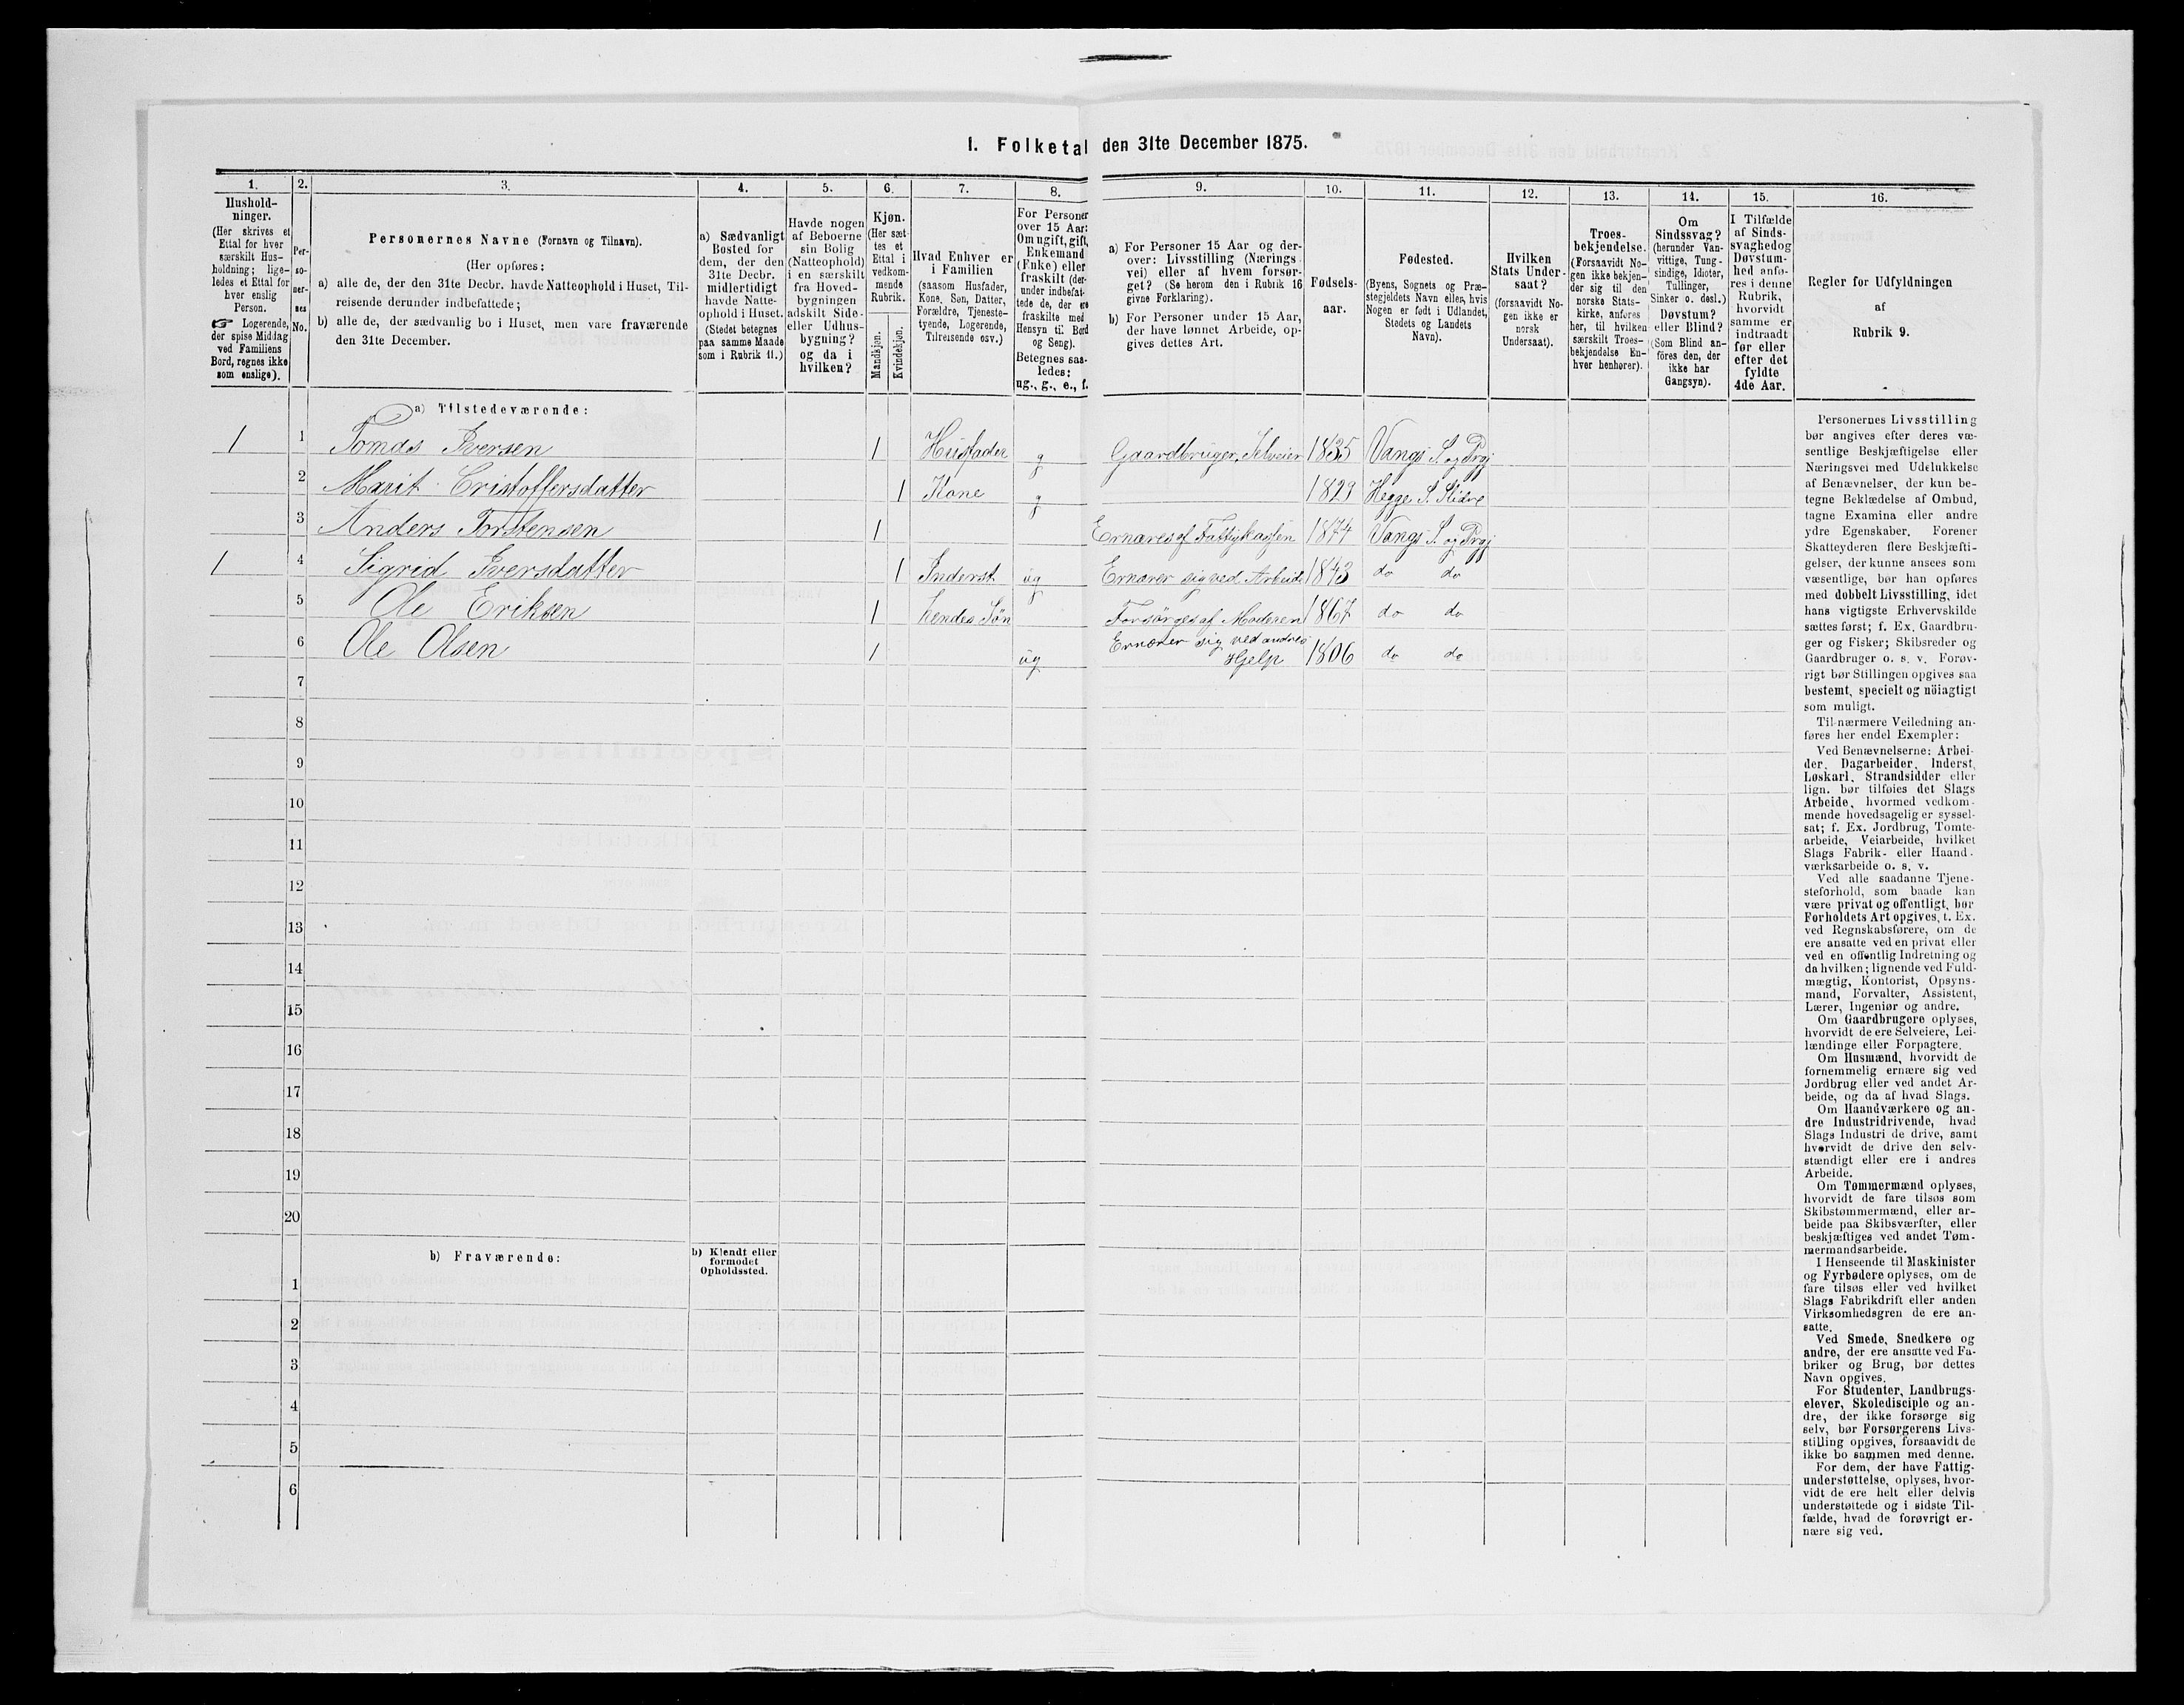 I. Folketal den 31te December 1875.
1.
Hushold-
ninger.
(Her skrives et
Ettal for hver
særskilt Hus-
holdning; lige-
ledes et Ettal for
hver enslig
Person.
☞ Logerende,
der spise Middag
ved Familiens
Bord, regnes ikke
som enslige).
2.
Per-
so-
ner-
nes
No.
3.
Personernes Navne (Fornavn og Tilnavn).
(Her opføres:
a) alle de, der den 31te Decbr. havde Natteophold i Huset, Til-
reisende derunder indbefattede;
b) alle de, der sædvanlig bo i Huset, men vare fraværende
den 31te December.
4.
a) Sædvanligt
Bosted for
dem, der den
31te Decbr.
midlertidigt
havde Natte-
ophold i Huset.
(Stedet betegnes
paa samme Maade
som i Rubrik 11.)
5.
Havde nogen
af Beboerne
sin Bolig
(Natteophold)
i en særskilt
fra Hoved-
bygningen
adskilt Side-
eller Udhus-
bygning?
og da i
hvilken?
6.
Kjøn.
(Her sæt-
tes et
Ettal i
vedkom-
mende
Rubrik.
Mandkjøn.
Kvindekjøn.
7.
Hvad Enhver er
i Familien
(saasom Husfader,
Kone, Søn, Datter,
Forældre, Tjeneste-
tyende, Logerende,
Tilreisende osv.)
8.
For Personer
over 15 Aar:
Om ugift, gift,
Enkemand
(Enke) eller
fraskilt (der-
under indbefat-
tede de, der ere
fraskilte med
Hensyn til Bord
og Seng).
Betegnes saa-
ledes:
ug., g., e., f.
9.
a) For Personer 15 Aar og der-
over: Livsstilling (Nærings
vei) eller af hvem forsør-
get? (Se herom den i Rubrik 16
givne Forklaring).
b) For Personer under 15 Aar,
der have lønnet Arbeide, op-
gives dettes Art.
10.
Fødsels-
aar.
11.
Fødested.
(Byens, Sognets og Præ-
stegjeldets Navn eller, hvis
Nogen er født i Udlandet,
Stedets og Landets
Navn).
12.
Hvilken
Stats Under-
saat?
(forsaavidt No-
gen ikke er
norsk
Undersaat).
13.
Troes-
bekjendelse.
(Forsaavidt No-
gen ikke bekjen-
der sig til den
norske Stats-
kirke, anføres
her, til hvilken
særskilt Troes-
bekjendelse En-
hver henhører).
14.
Om
Sindssvag?
(herunder Van-
vittige, Tung-
sindige, Idioter,
Tullinger,
Sinker o. desl.)
Døvstum?
eller Blind?
(Som Blind an-
føres den, der
ikke har
Gangsyn).
15.
I Tilfælde
af Sinds-
svaghed og
Døvstum-
hed anfø-
res i denne
Rubrik,
hvorvidt
samme er
indtraadt
før eller
efter det
fyldte
4de Aar.
16.
Regler for Udfyldningen
af
Rubrik 9.
a) Tilstedeværende:
1 1 Tomas Iversen 1 Husfader g Gaardbruger, Selveier 1835 Vangs S. og Prgj
2 Marit Cristoffersdatter 1 Kone g 1829 Hegge S. Slidre
3 Anders Torstensen 1 Ernæres af Fattigkassen 1874 Vangs S. og Prgj
1 4 Sigrid Iversdatter 1 Inderst ug Ernærer sig ved Arbeide 1843 do do
5 Ole Eriksen 1 hendes Søn Forsørges af Moderen 1867 do do
6 Ole Olsen 1 ug Ernærer sig ved andres
Hjelp 1806 do do
7
8
9
10
11
12
13
14
15
16
17
18
19
20
b) Fraværende:
b) Kjendt eller
formodet
Opholdssted.
1
2
3
4
5
6
Personernes Livsstilling
bør angives efter deres væ-
sentlige Beskjæftigelse eller
Næringsvei med Udelukkelse
af Benævnelser, der kun be-
tegne Beklædelse af Ombud,
tagne Examina eller andre
ydre Egenskaber. Forener
Skatteyderen flere Beskjæfti-
gelser, der kunne ansees som
væsentlige, bør han opføres
med dobbelt Livsstilling, idet
hans vigtigste Erhvervskilde
sættes først; f. Ex. Gaardbru-
ger og Fisker; Skibsreder og
Gaardbruger o. s. v. Forøv-
rigt bør Stillingen opgives saa
bestemt, specielt og nöiagtigt
som muligt.
Til nærmere Veiledning an-
føres her endel Exempler:
Ved Benævnelserne: Arbei-
der, Dagarbeider, Inderst,
Løskarl, Strandsidder eller
lign. bør tilføies det Slags
Arbeide, hvormed vedkom-
mende hovedsagelig er syssel-
sat; f. Ex. Jordbrug, Tomte-
arbeide, Veiarbeide, hvilket
Slags Fabrik- eller Haand-
værksarbeide o. s. v.
Ved alle saadanne Tjene-
steforhold, som baade kan
være privat og offentligt, bør
Forholdets Art opgives, t. Ex.
ved Regnskabsførere, om de
ere ansatte ved en privat eller
ved en offentlig Indretning og
da hvilken; lignende ved Fuld-
mægtig, Kontorist, Opsyns-
mand, Forvalter, Assistent,
Lærer, Ingeniør og andre.
Om Gaardbrugere oplyses,
hvorvidt de ere Selveiere, Lei-
lændinge eller Forpagtere.
Om Husmænd, hvorvidt de
fornemmelig ernære sig ved
Jordbrug eller ved andet Ar-
beide, og da af hvad Slags.
Om Haandværkere og an-
dre Industridrivende, hvad
Slags Industri de drive, samt
hvorvidt de drive den selv-
stændigt eller ere i andres
Arbeide.
Om Tømmermænd oplyses,
hvorvidt de fare tilsøs som
Skibstømmermænd, eller ar-
beide paa Skibsværfter, eller
beskjæftiges ved andet Tøm-
mermandsarbeide.
I Henseende til Maskinister
og Fyrbødere oplyses, om de
fare tilsøs eller ved hvilket
Slags Fabrikdrift eller anden
Virksomhedsgren de ere an-
satte.
Ved Smede, Snedkere og
andre, der ere ansatte ved Fa-
briker og Brug, bør dettes
Navn opgives.
For Studenter, Landbrugs-
elever, Skoledisciple og an-
dre, der ikke forsørge sig
selv, bør Forsørgerens Livs-
stilling opgives, forsaavidt de
ikke bo sammen med denne.
For dem, der have Fattig-
understøttelse, oplyses, hvor-
vidt de ere helt eller delvis
understøttede og i sidste Til-
fælde, hvad de forøvrigt er-
nære sig ved.